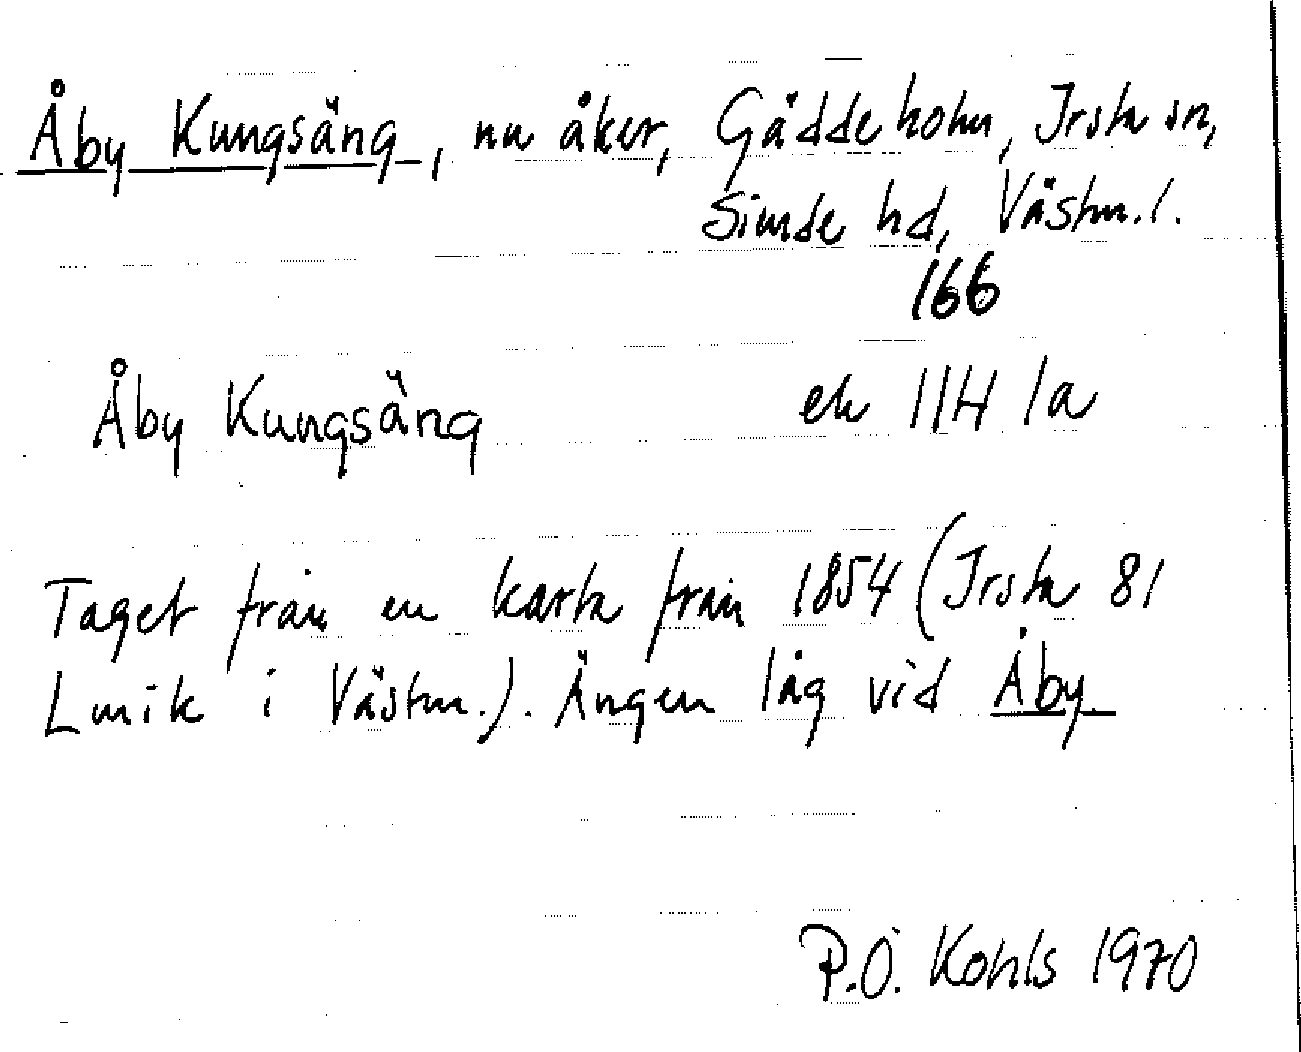 Åby Kungsäng, nu åker, Gäddeholm, Irsta sn,
Siende hd, Västm. l.
166
Åby Kungsäng ek 11H 1a
Taget från en karta från 1854 (Irsta 81
Lmik i Västm.). Ängen låg vid Åby
P.O. Kohls 1970